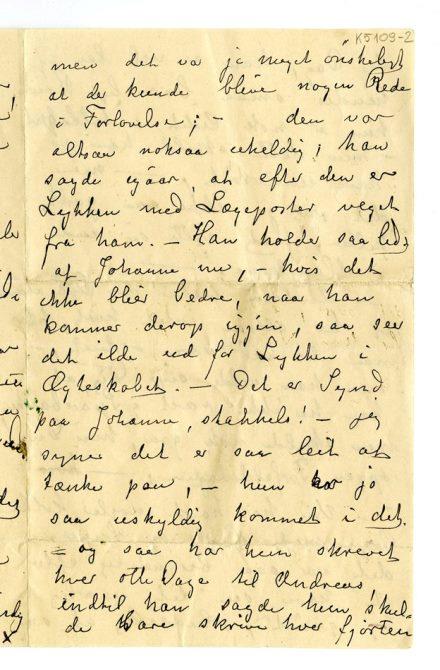 K5109-2
men det va jo meget ønskeligt
at de kunde blive nogen Rede
i Forlovelse; - den var
altsaa noksaa uheldig; han
sagde igaar, at efter den er
Lykken med Lægeposter veget
fra ham. - Han holder saa lidt
af Johanne nu, - hvis det
ikke blier bedre, naar han
kommer derop igjen, saa seer
det ilde ud for Lykken i
Ægteskabet. - Det er Synd
paa Johanne, stakkels! - jeg
synes det er saa leit at
tænke paa, - hun har jo
saa uskyldig kommet i det.
= og saa har hun skrevet
hver otte Dage til Andreas,
indtil han sagde hun skul-
de bare skrive hver fjorten